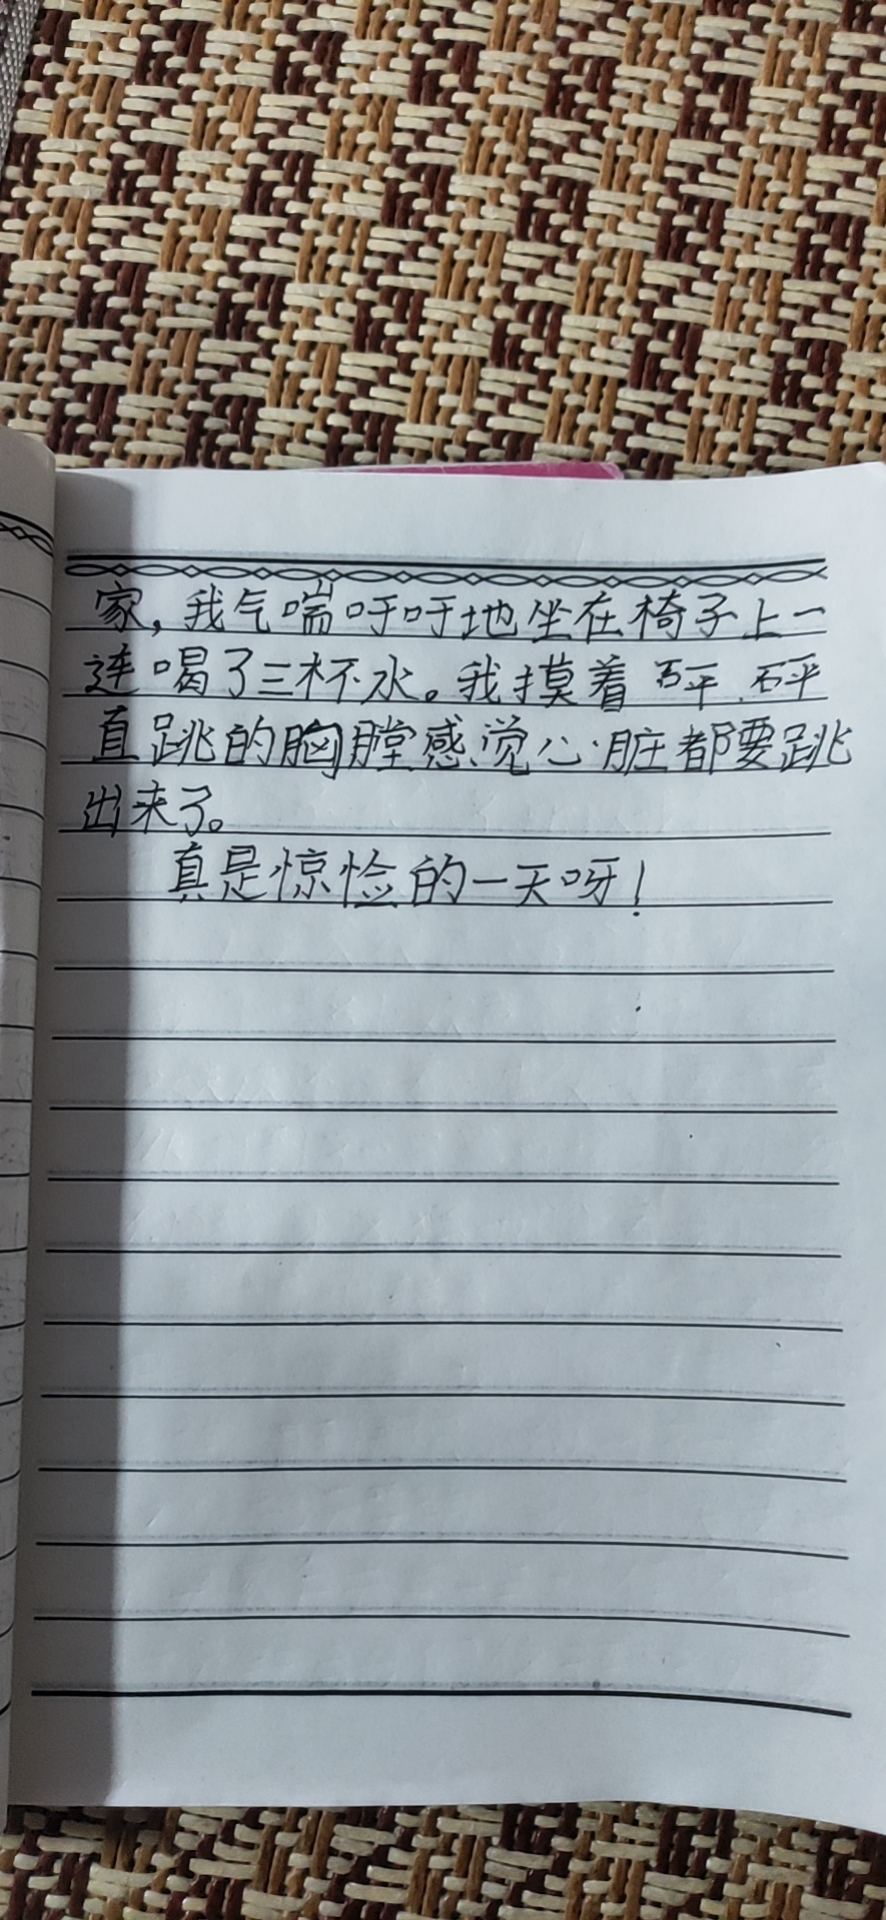 家，我气喘吁吁地坐在椅子上一
连喝了三杯水。我摸着砰砰
直跳的胸膛感觉心脏都要跳
出来了。
真是惊险的一天呀！